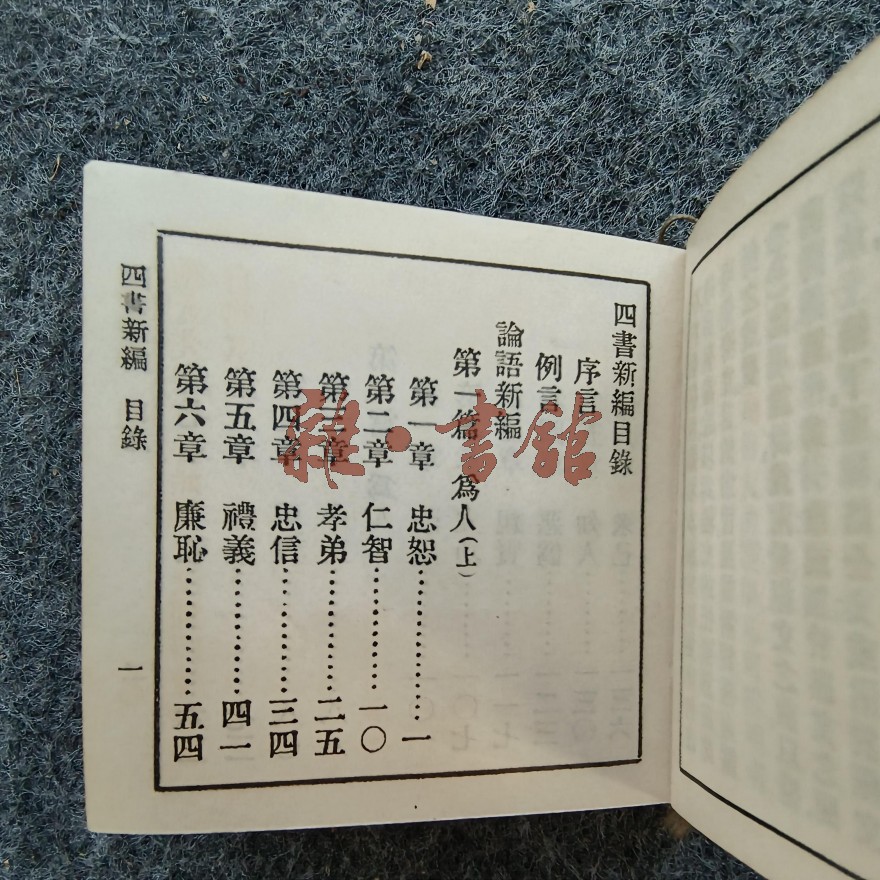 四書新編目錄
序言
例言
論語新編
第一篇 爲人(上)
第一章 忠恕…………一
第二章 仁智…………一〇
第三章 孝弟…………二五
第四章 忠信…………三四
第五章 禮義…………四一
第六章 廉恥…………五四
四書新編 目錄
一
雜·書館